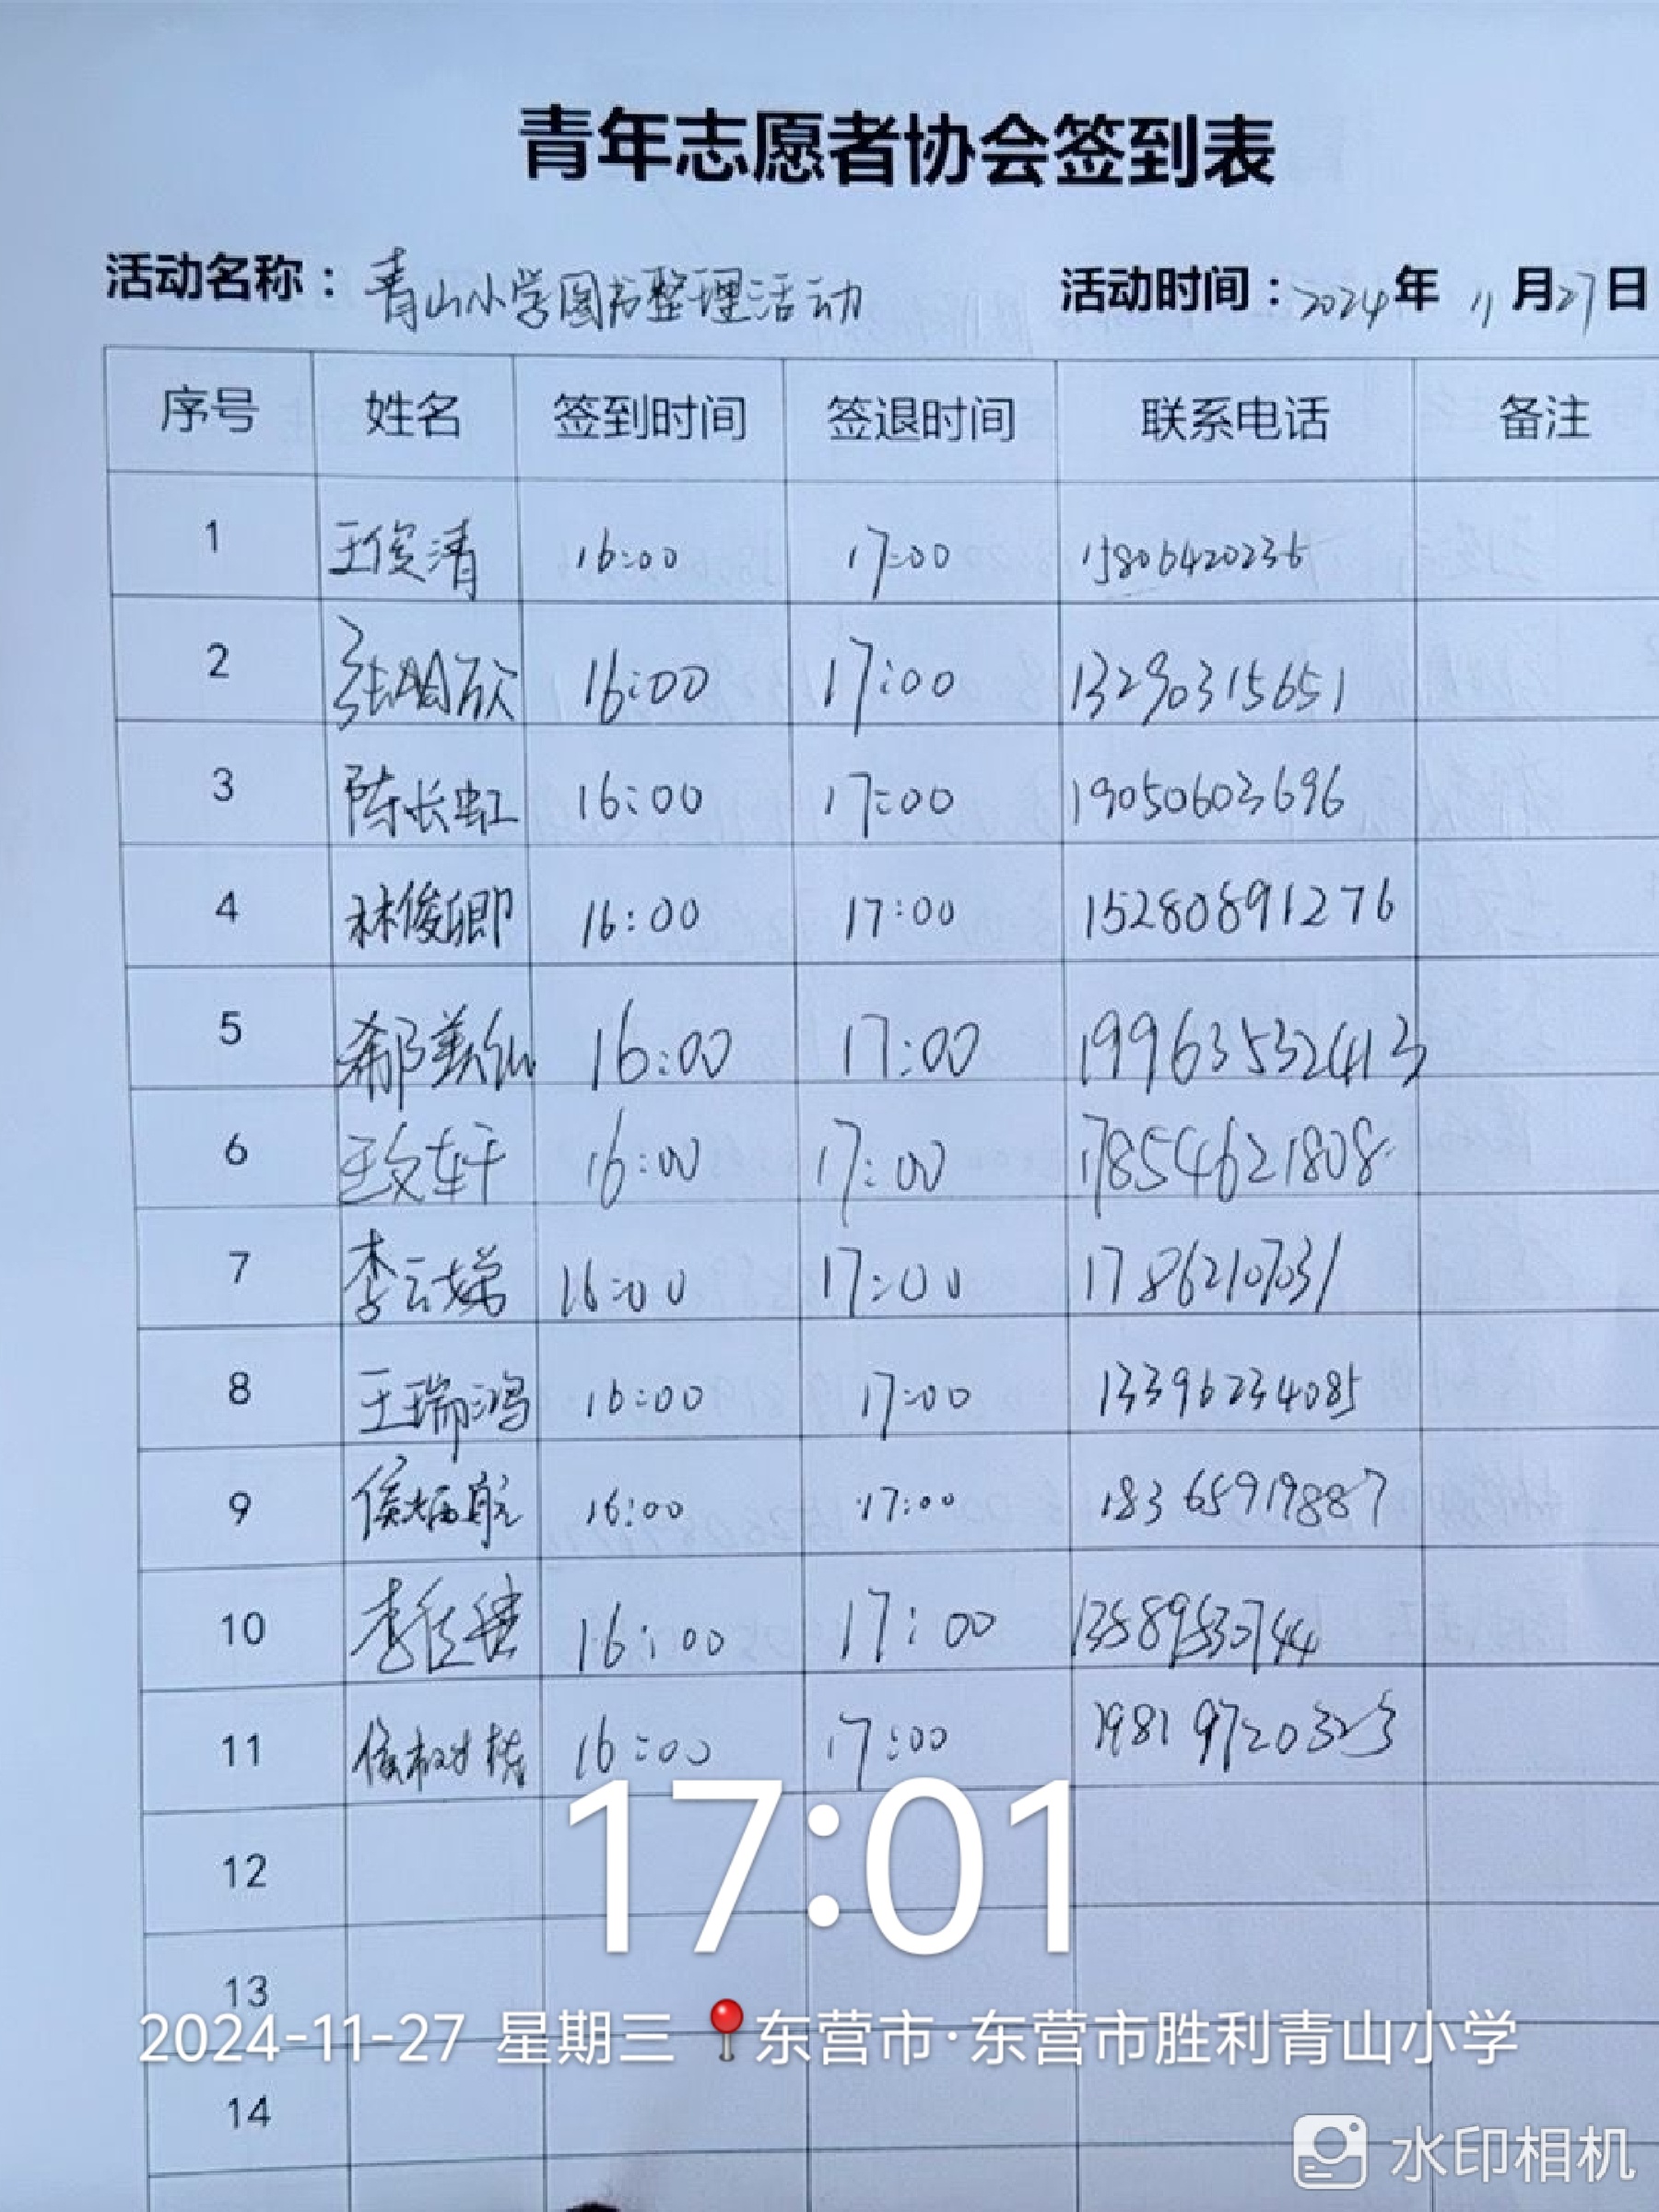 青年志愿者协会签到表
活动名称：青山小学图书整理活动 活动时间：2024年 11月27日
序号 姓名 签到时间 签退时间 联系电话 备注
1 王俊清 16:00 17:00 15806420236
2 16:00 17:00 13290315651
3 陈长虹 16:00 17:00 19050603696
4 林俊卿 16:00 17:00 15280891276
5 郗美仙 16:00 17:00 19963532413
6 王文轩 16:00 17:00 17854621808
7 李云娣 16:00 17:00 17862107031
8 王瑞鸿 16:00 17:00 13396234085
9 侯炳航 16:00 17:00 18365919887
10 16:00 17:00
11 16:00 17:00 19819720323
12
17:01
13
2024-11-27 星期三 东营市·东营市胜利青山小学
14
水印相机